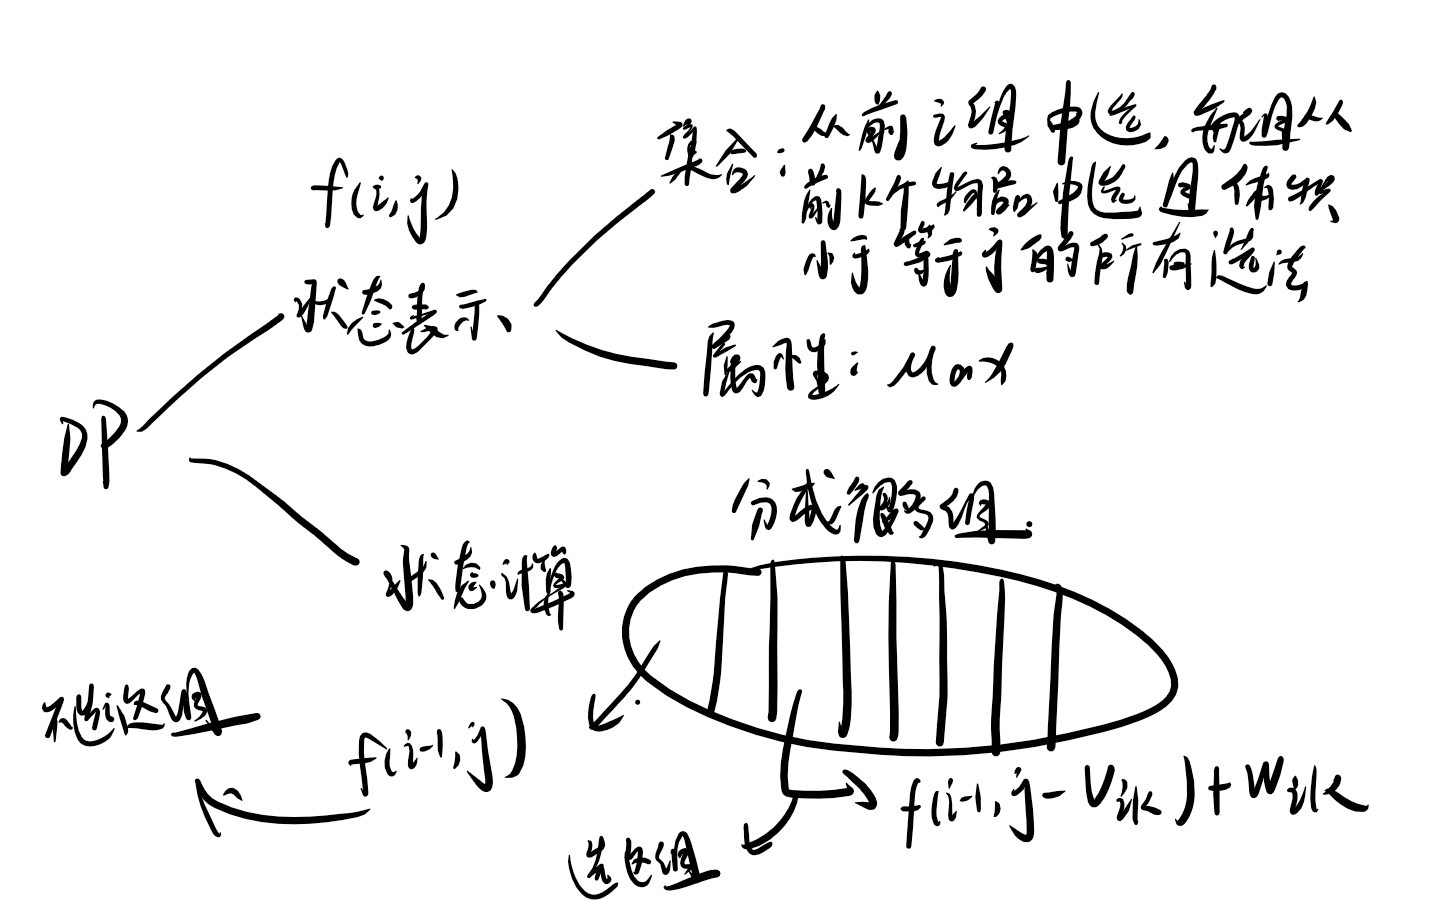 集合：从前i组中选，每组从
前k个物品中选且体积
小于等于j的所有选法
f(i,j)
状态表示
属性：Max
DP
分成很多组
状态计算
不选这组
f(i-1,j)
f(i-1,j-Vik)+Wik
选这组